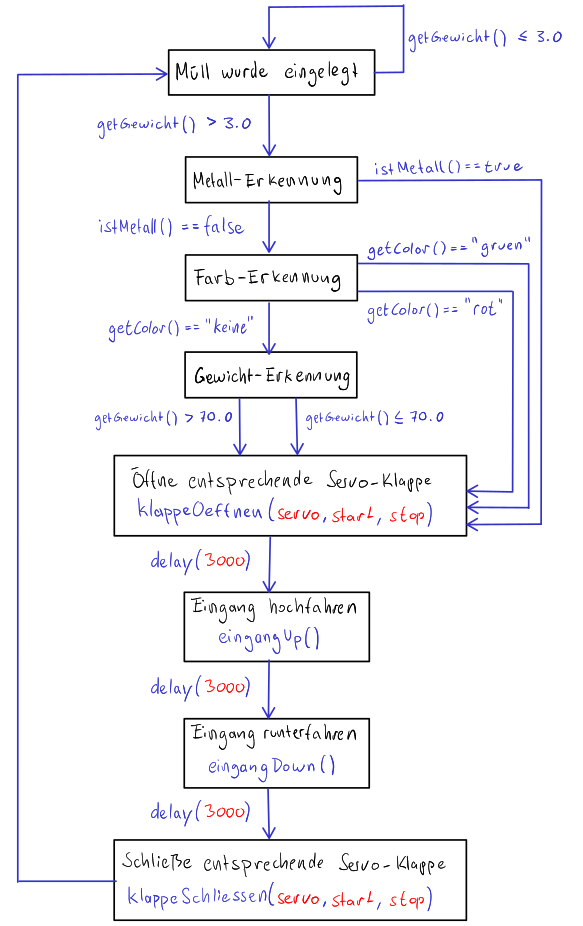 getGewicht() ≤ 3.0
Müll wurde eingelegt
getGewicht() > 3.0
Metall-Erkennung
istMetall()==true
istMetall()==false
getColor()=="gruen"
Farb-Erkennung
getColor()=="rot"
getColor()=="keine"
Gewicht-Erkennung
getGewicht() > 70.0
getGewicht() ≤ 70.0
Öffne entsprechende Servo-Klappe
klappeOeffnen(servo, start, stop)
delay(3000)
Eingang hochfahren
eingangUp()
delay(3000)
Eingang runterfahren
eingangDown()
delay(3000)
Schließe entsprechende Servo-Klappe
klappeSchliessen(servo, start, stop)